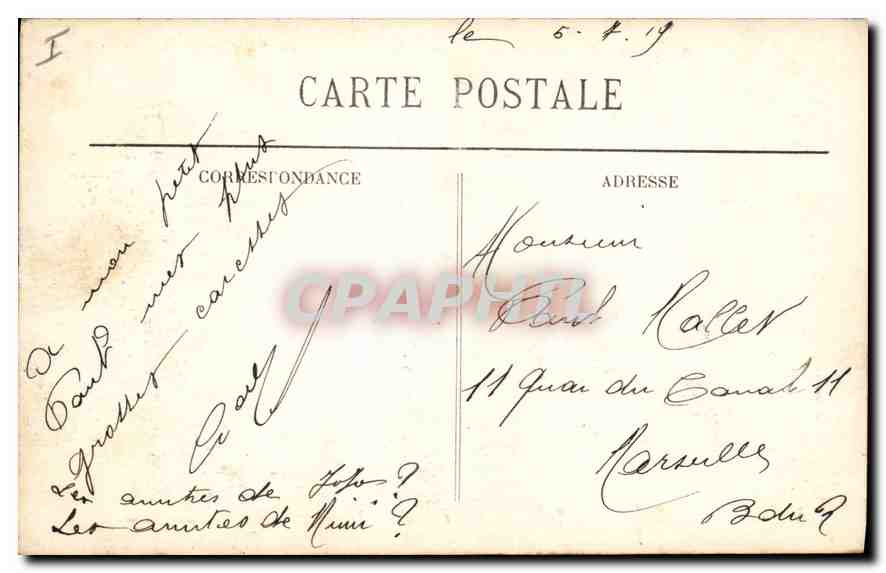 I
le 5-7-19
CARTE POSTALE
CORRESPONDANCE
ADRESSE
A mon petit
Paul mes plus
grosses caresses
Les amitiés de Jojo?
Les amitiés de Mimi?
Monsieur
Paul Mallet
11 Quai du Canal 11
Marseille
B du R
CPAPHIL